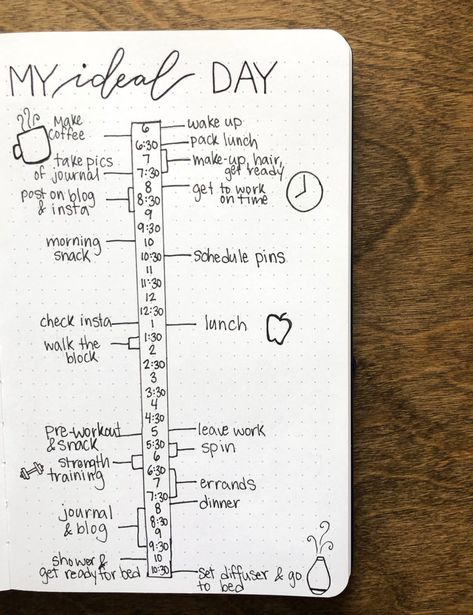 MY ideal DAY
Make
coffee
take pics
of journal
post on blog
& insta
morning
snack
check insta
walk the
block
pre-workout
& snack
strength
training
journal
& blog
shower &
get ready for bed
6
6:30
7
7:30
8
8:30
9
9:30
10
10:30
11
11:30
12
12:30
1
1:30
2
2:30
3
3:30
4
4:30
5
5:30
6
6:30
7
7:30
8
8:30
9
9:30
10
10:30
wake up
pack lunch
make-up, hair,
get ready
get to work
on time
schedule pins
lunch
leave work
spin
errands
dinner
set diffuser & go
to bed